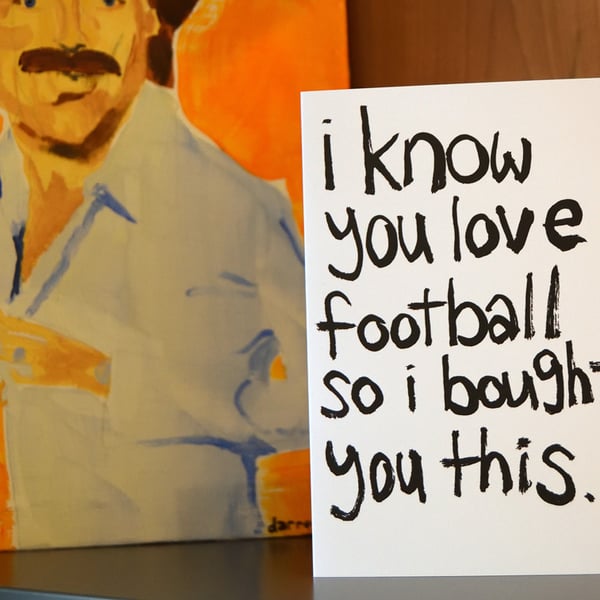 i know
you love
football
so i bought
you this.